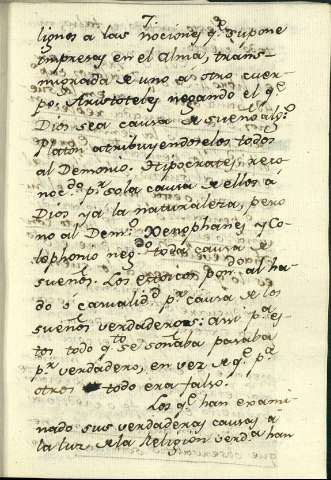 7.
lignos a las nociones q.e supone
impresas en el alma, trans-
migrada de uno a otro cuer-
po; Aristoteles negando el q.e
Dios sea causa de sueño alg.o
Platon atribuyendoselos todos
al Demonio. Hipocrates, reco-
noc.do p.r sola causa de ellos á
Dios y a la naturaleza, pero
no al Dem.o Xenophanes y Co-
lophonio neg.do toda causa de
sueños. Los estoicos pon.do al ha-
do ó casualid.d p.r causa de los
sueños verdaderos: asi p.a es-
tos todo q.to se soñaba pasaba
p.r verdadero, en vez de q.e p.a
otros todo era falso.
Los q.e han exami-
nado sus verdaderas causas a
la luz de la Religion verd.a han